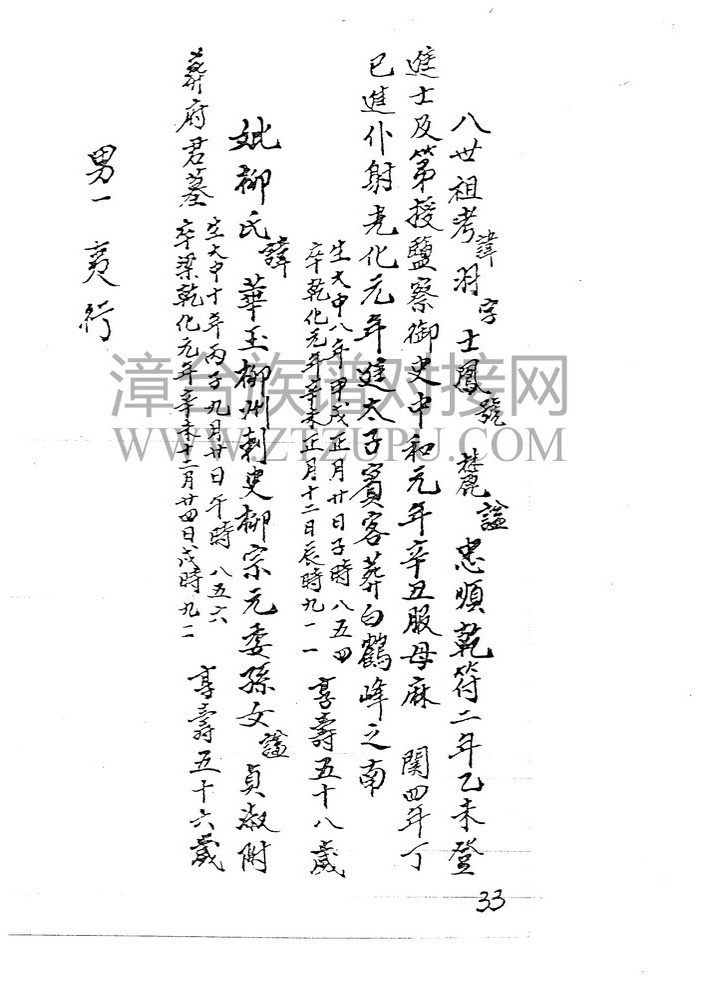 八世祖考諱羽字士鳳號 麓諡忠順乾符二年乙未登
進士及第授鹽察御史中和元年辛丑服母麻 関四年丁
已進仆射光化元年進太子賓客葬白鶴峰之南
生大中八年甲戌正月廿日子時八五四
卒乾化元年辛未正月十二日辰時九一一
享壽五十八歲
妣柳氏諱華玉柳州刺史柳宗元委孫女諡貞淑附
葬府君墓
生大中十年丙子九月廿日午時八五六
卒梁乾化元年辛未十二月廿四日戌時九一二
享壽五十六歲
男一 夷行
33
漳台族谱对接网
WWW.ZTZUPU.COM